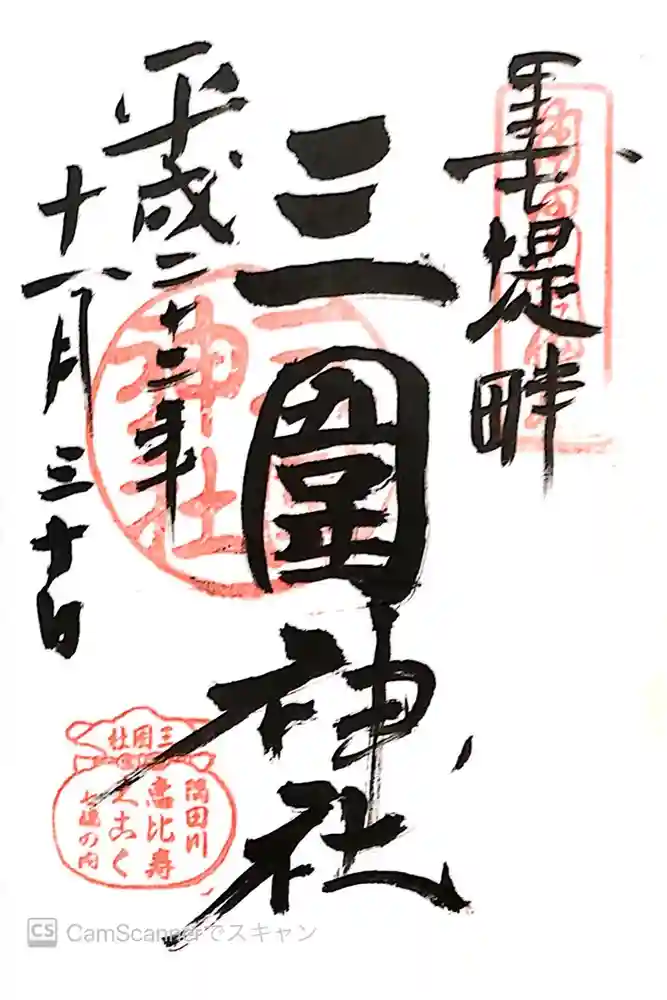 墨堤畔
三圍神社
平成二十三年
十一月三十日
神社
三囲社
隅田川
恵比寿
大こく
七福の内
CS CamScannerでスキャン